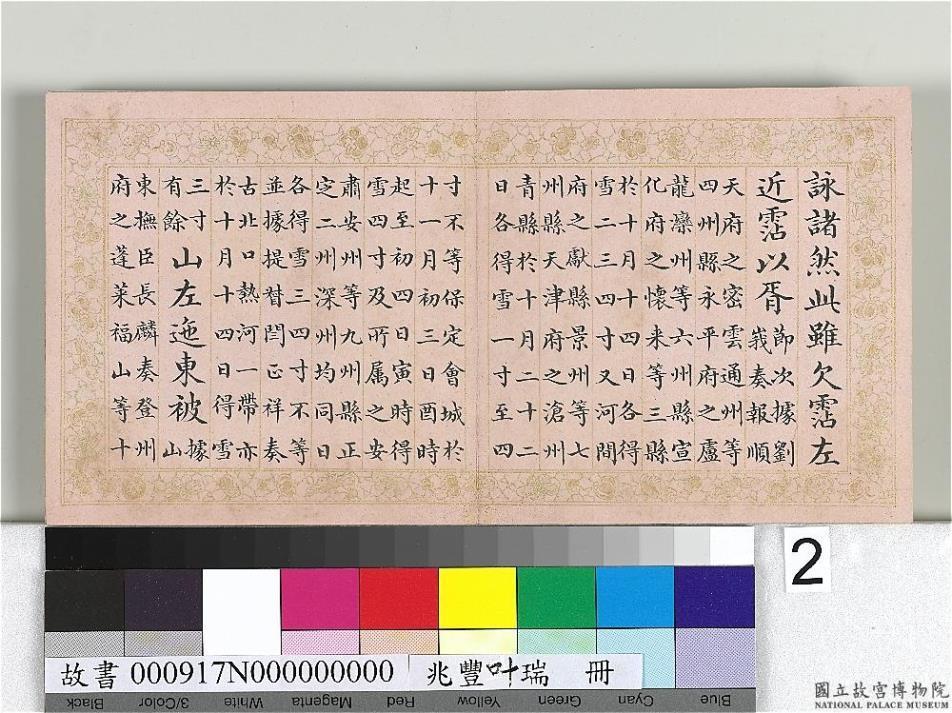 詠諸然此雖欠霑左
近霑以胥節次據劉
峩奏報順
天府之密雲通州等
四州縣永平府之盧
龍灤州等六州縣宣
化府之懷来等三縣
於十月十四日各得
雪二三四寸又河間
府之獻縣景州等七
州縣天津府之滄州
青縣於十月二十二
日各得雪一寸至四
寸不等保定會城於
十一月初三日酉時
起至初四日寅時得
雪四寸及所属之安
肅安州等九州縣正
定二州深州均同日
各得雪三四寸不等
並據提督閆正祥奏
古北口熱河一帶亦
於十月十四日得雪
三寸
有餘山左迤東被據
山
東撫臣長麟奏登州
府之蓬莱福山等十
2
故書 000917N000000000 兆豐叶瑞 冊
Black 3/Color White Magenta Red Yellow Green Cyan Blue
國立故宮博物院
NATIONAL PALACE MUSEUM